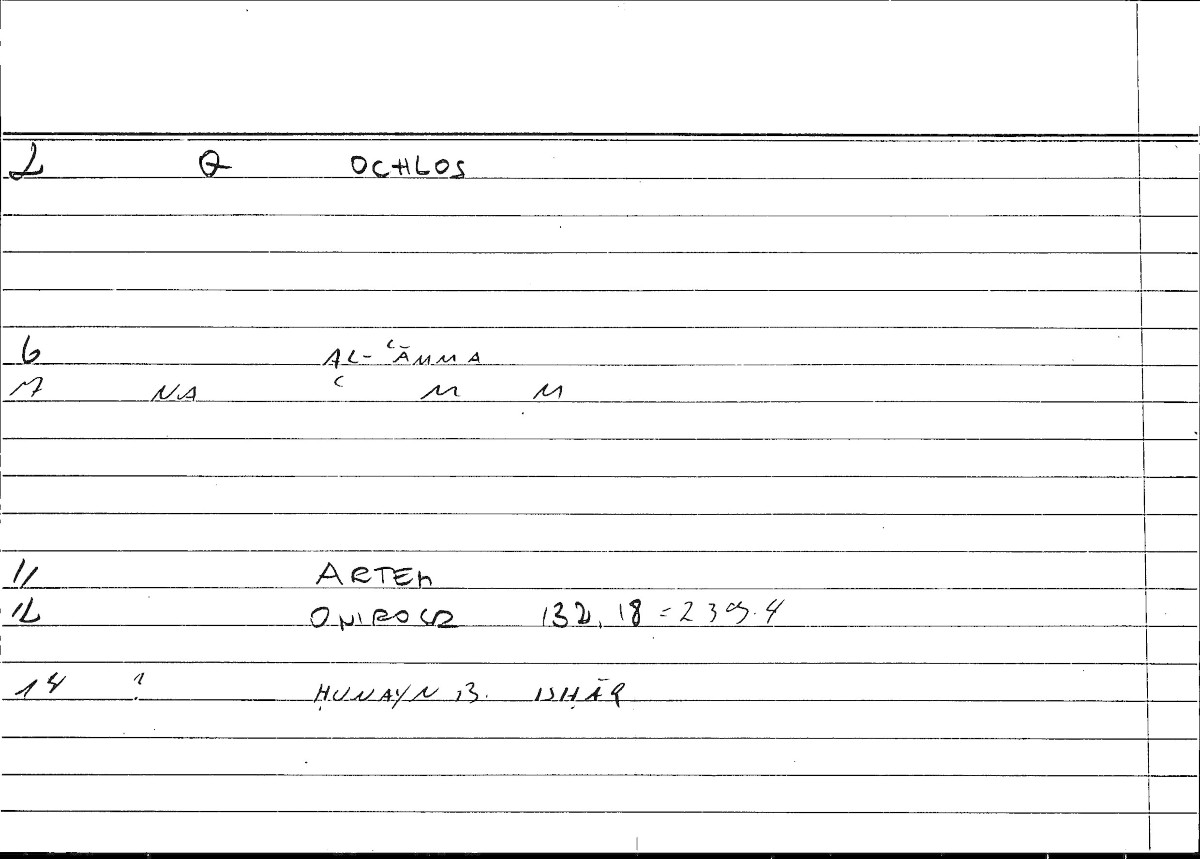 2 Q OCHLOS
6 AL-ʿĀMMA
7 NA ʿ M M
11 ARTEM
12 ONIROCR 132, 18 = 239.4
14 ? ḤUNAYN B. ISḤĀQ